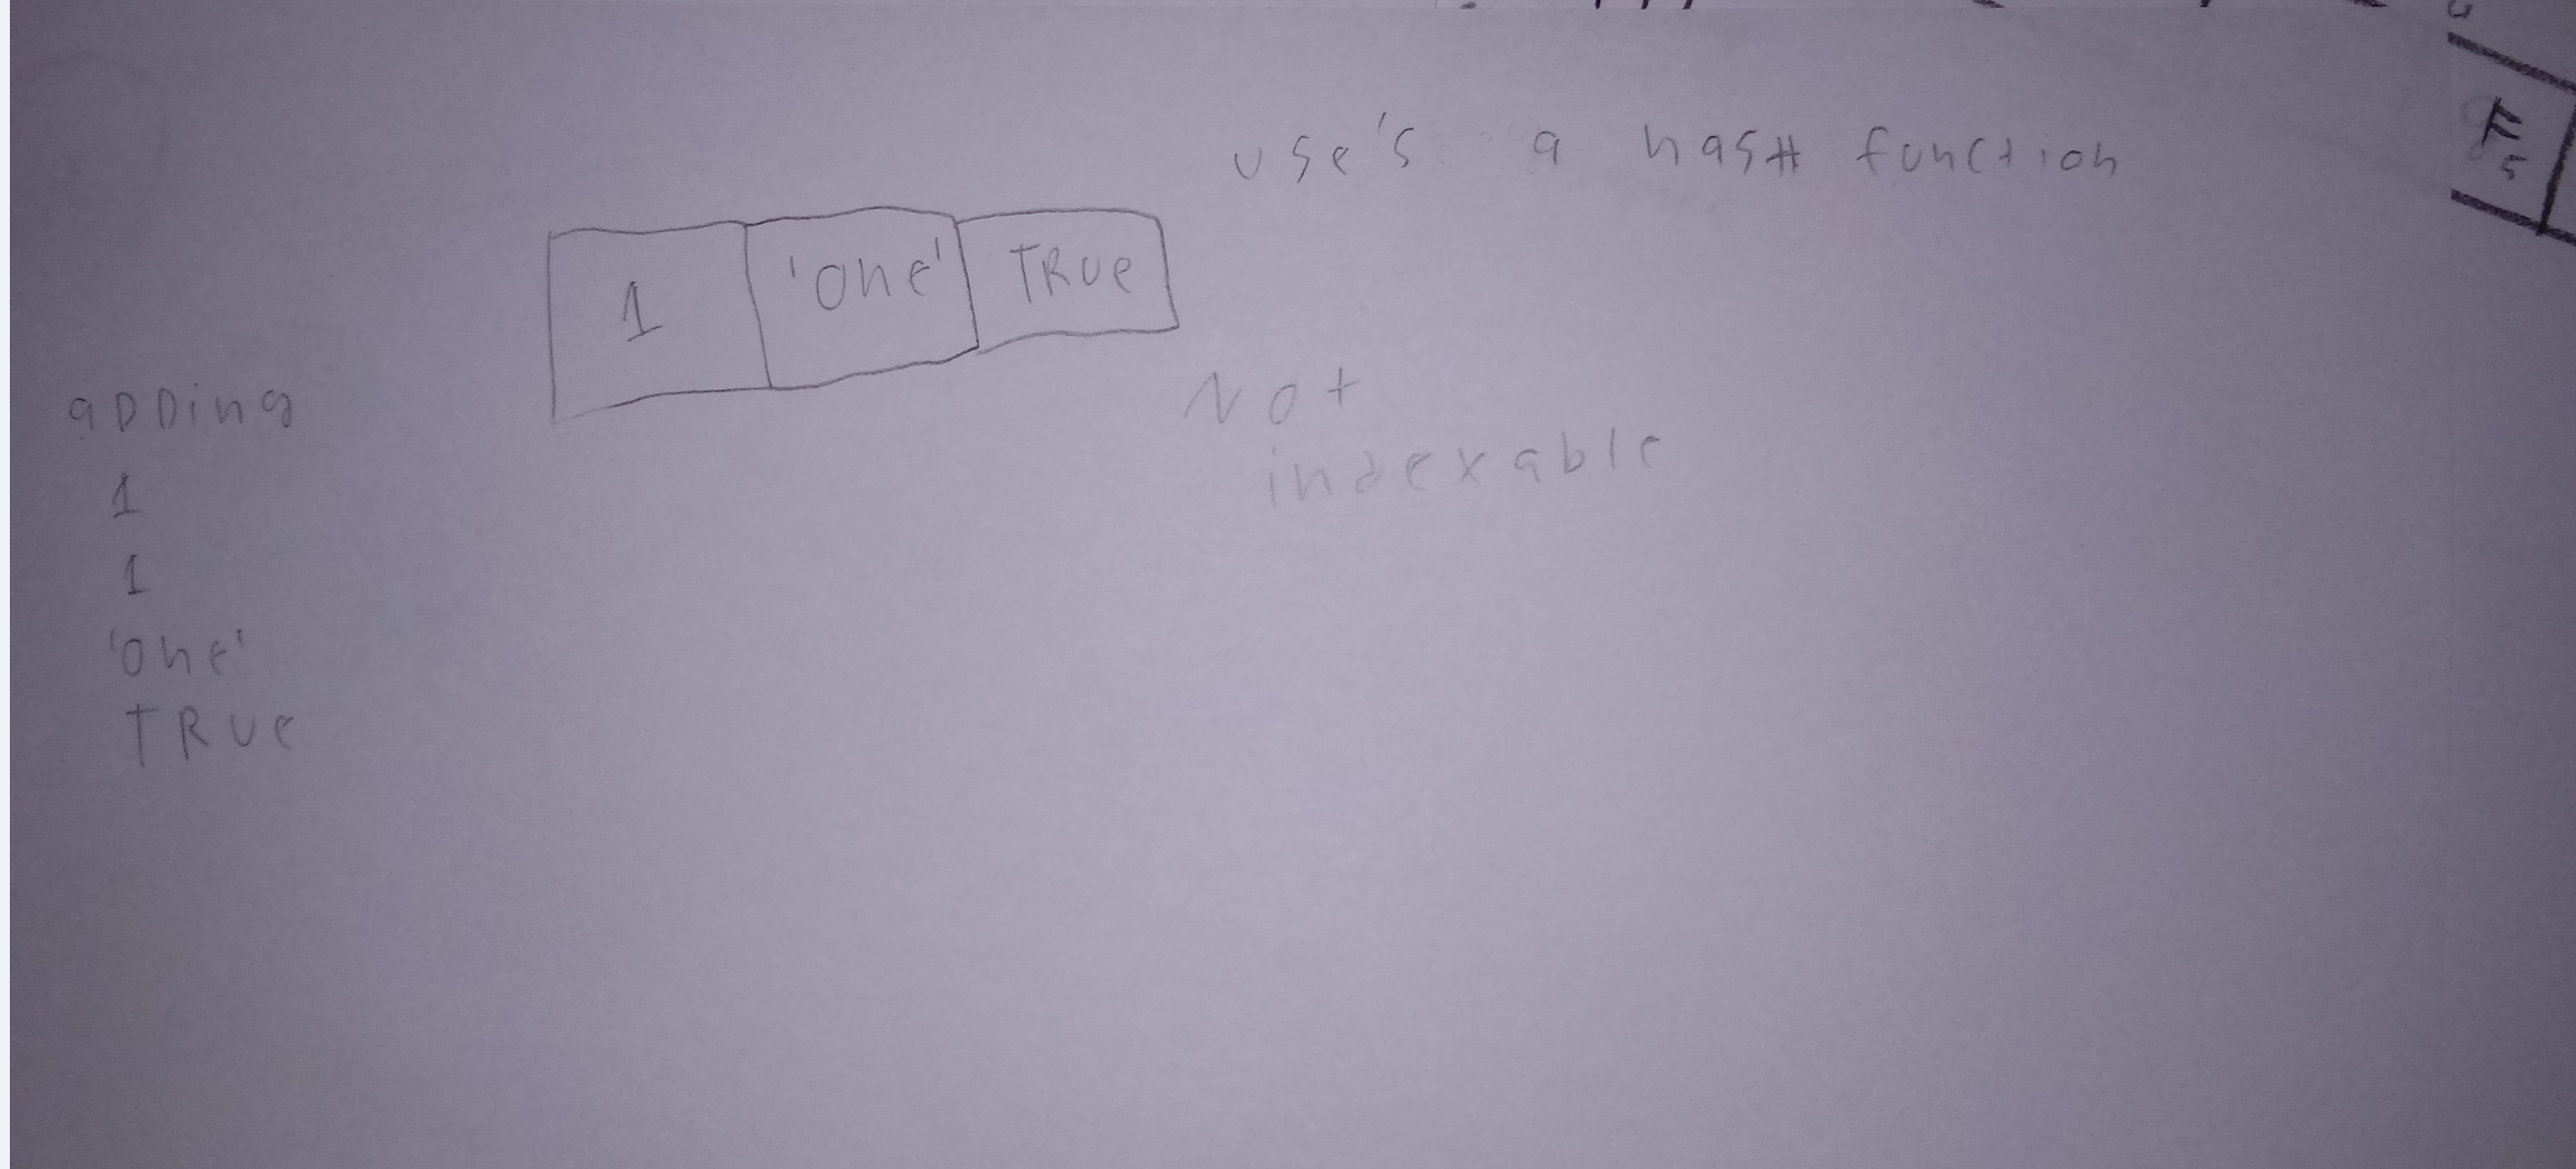 use's a hash function
1 'one' TRue
Not
indexable
aDDing
1
1
'one'
TRue
F5